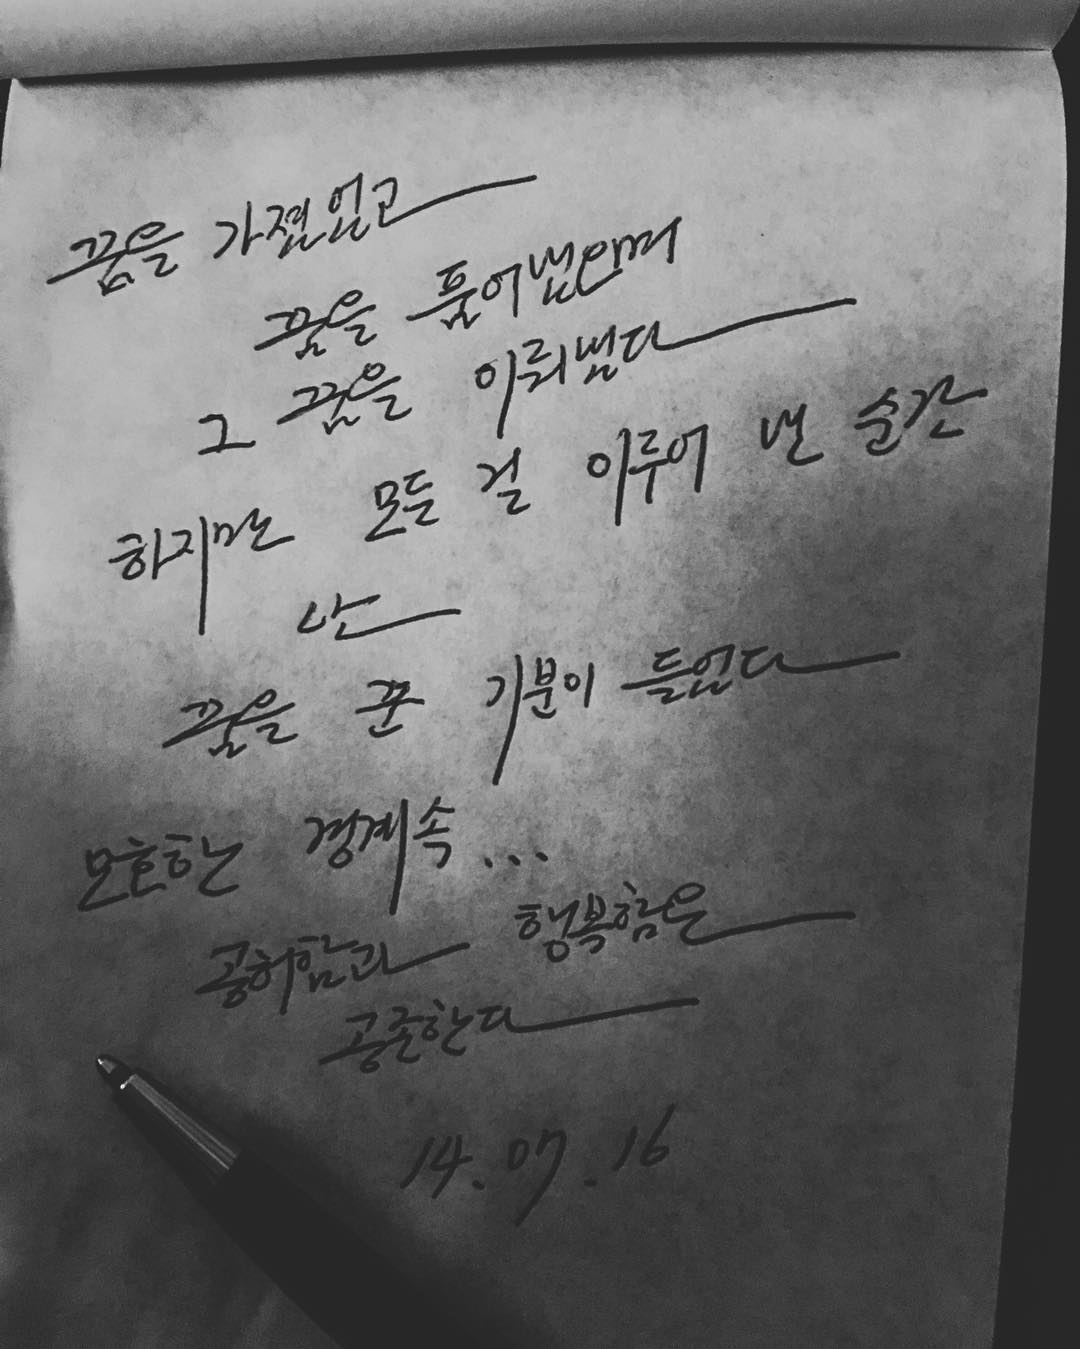 꿈을 가졌었고
꿈을 품어냈으며
그 꿈을 이뤄냈다
하지만 모든 걸 이루어 낸 순간
난
꿈을 꾼 기분이 들었다
모호한 경계속...
공허함과 행복함은
공존한다
14.07.16